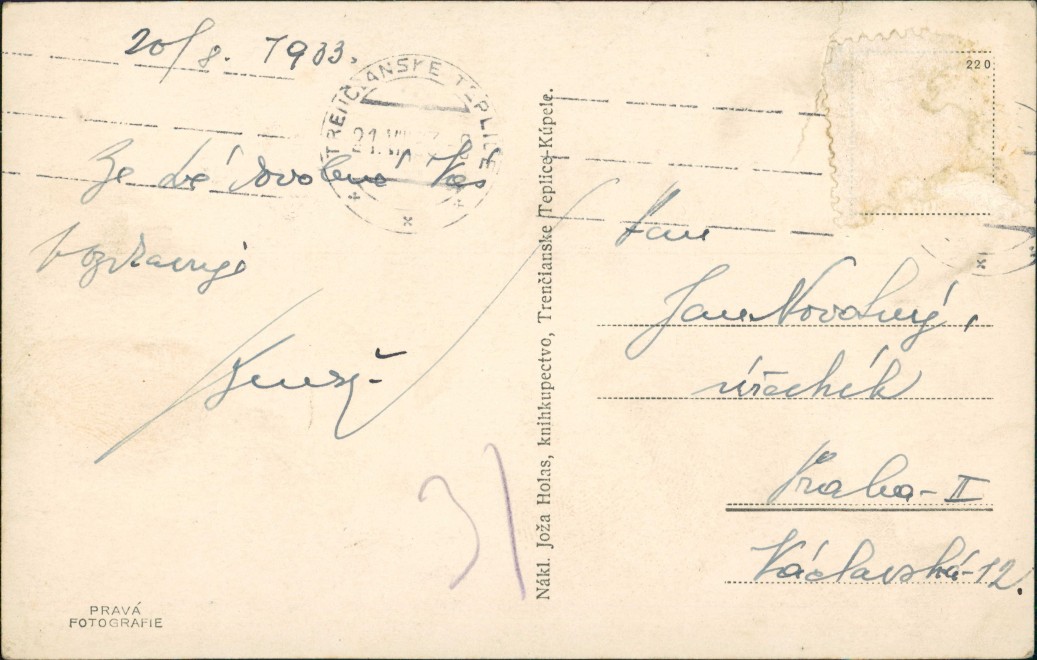 20/8. 1933.
TRENČIANSKE TEPLICE
Ze své dovolené Vás
pozdravuje
220
Pan
Jan Novotný,
úředník
Praha-II
Václavská-12.
31
Nákl. Joža Holas, knihkupectvo, Trenčianske Teplice-Kúpele.
PRAVÁ
FOTOGRAFIE